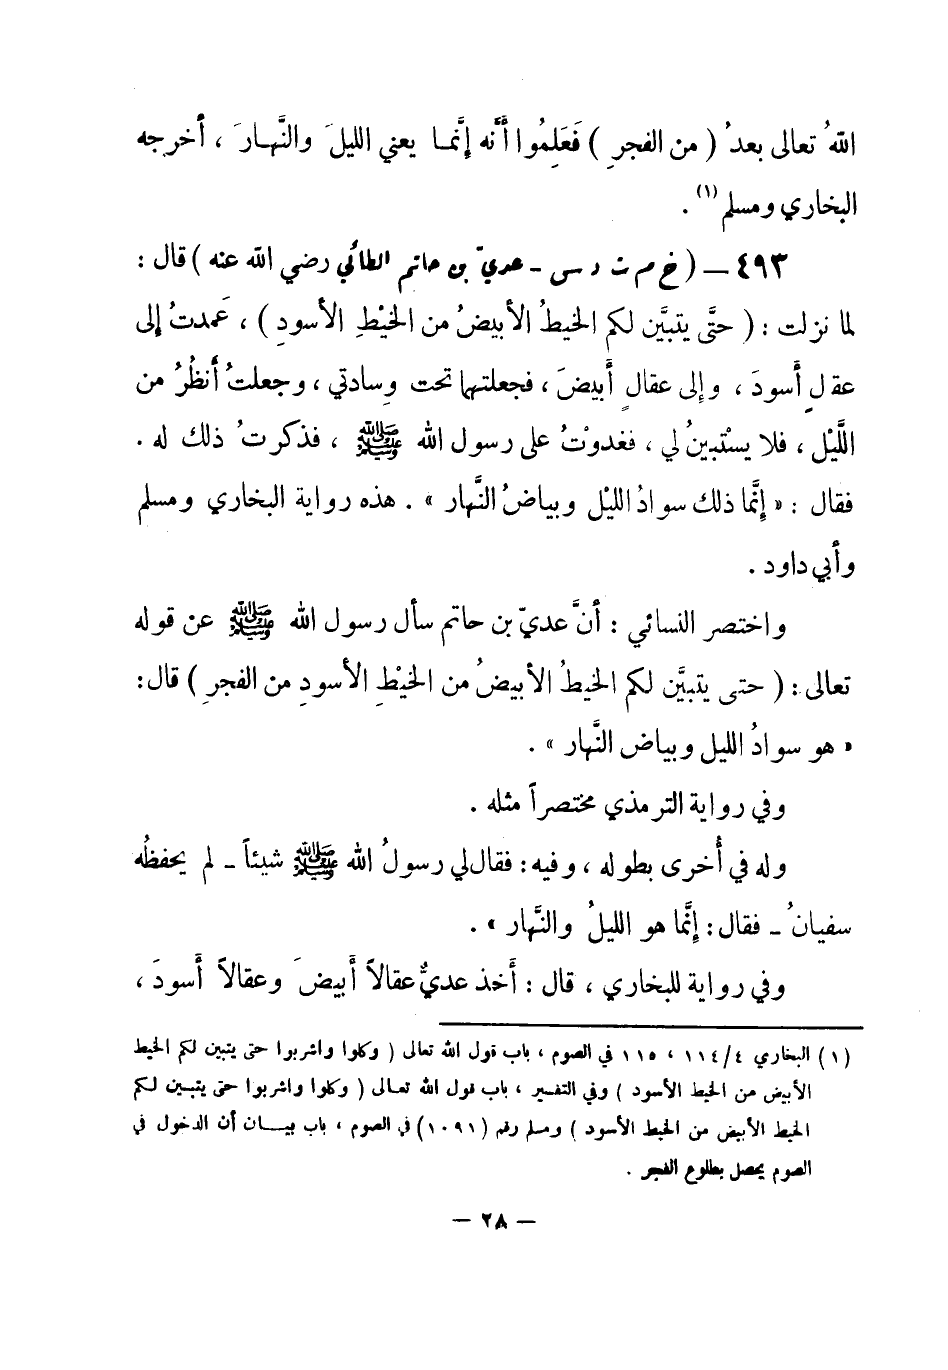 اللهُ تعالى بعدُ ( من الفجرِ ) فَعَلِمُوا أَنَّه إِنَّمَا يعني الليلَ والنَّهارَ ، أخرجه
البخاري ومسلم (١) .
٤٩٣ – ( خ م ت د س - عديّ بن حاتم الطائي رضي الله عنه ) قال :
لما نزلت : ( حتَّى يتبيَّن لكم الخيطُ الأبيضُ من الخيْطِ الأسودِ ) ، عَمدتُ إلى
عقالٍ أَسودَ ، وإلى عقالٍ أَبيضَ ، فجعلتهما تحت وِسادتي ، وجعلتُ أَنظُرُ من
اللَّيْل ، فلا يسْتبينُ لي ، فغدوْتُ على رسول الله ﷺ ، فذكرتُ ذلك له .
فقال : « إنَّما ذلك سوادُ الليْل وبياضُ النَّهار » . هذه رواية البخاري ومسلم
وأبي داود .
واختصر النسائي : أنَّ عديّ بن حاتم سأل رسول الله ﷺ عن قوله
تعالى : ( حتى يتبيَّن لكم الخيطُ الأبيضُ من الخيْطِ الأسودِ من الفجرِ ) قال :
« هو سوادُ الليل وبياض النَّهار » .
وفي رواية الترمذي مختصراً مثله .
وله في أُخرى بطوله ، وفيه : فقال لي رسولُ الله ﷺ شيئاً - لم يحفظُه
سفيانُ - فقال : إنَّما هو الليلُ والنَّهار » .
وفي رواية للبخاري ، قال : أَخذ عديٌّ عقالاً أَبيضَ وعقالاً أَسودَ ،
(١) البخاري ٤/١١٤ ، ١١٥ في الصوم ، باب قول الله تعالى ( وكلوا واشربوا حتى يتبين لكم الخيط
الأبيض من الخيط الأسود ) وفي التفسير ، باب قول الله تعالى ( وكلوا واشربوا حتى يتبين لكم
الخيط الأبيض من الخيط الأسود ) ومسلم رقم (١٠٩١) في الصوم ، باب بيان أن الدخول في
الصوم يحصل بطلوع الفجر .
– ٢٨ –